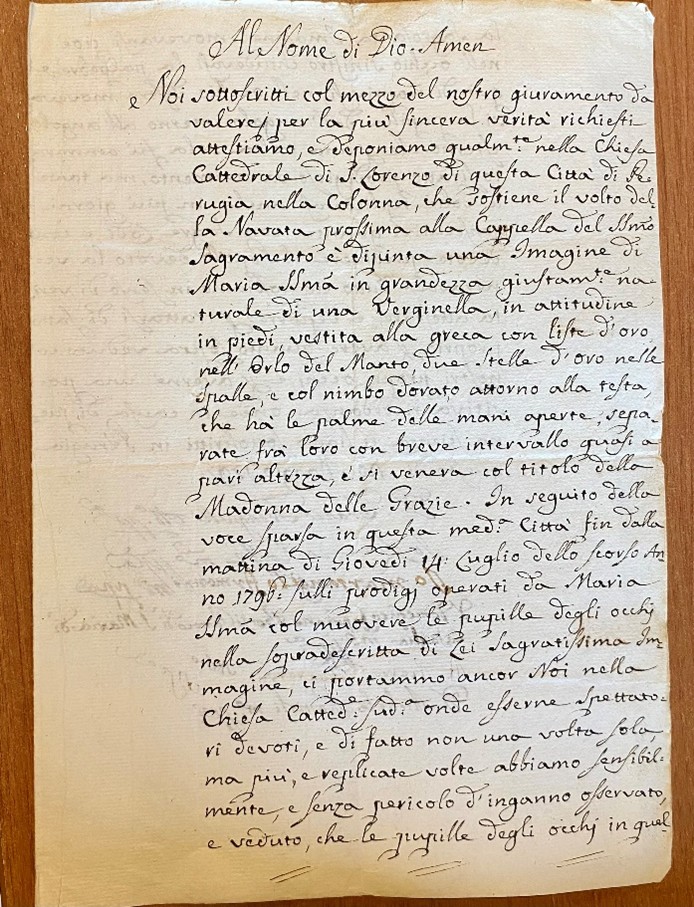 Al Nome di Dio. Amen
e Noi sottoscritti col mezzo del nostro giuramento da
valere per la più sincera verità richiesti
attestiamo, e deponiamo qualm.te nella Chiesa
Cattedrale di S. Lorenzo di questa Città di Pe-
rugia nella Colonna, che sostiene il volto del-
la Navata prossima alla Cappella del SSmo
Sagramento è dipinta una Imagine di
Maria SSma in grandezza giustam.te na-
turale di una Verginella, in attitudine
in piedi, vestita alla greca con liste d'oro
nell'Orlo del Manto, due stelle d'oro nelle
spalle, e col nimbo dorato attorno alla testa,
che hà le palme delle mani aperte, sepa-
rate frà loro con breve intervallo quasi a
pari altezza, e si venera col titolo della
Madonna delle Grazie. In seguito della
voce sparsa in questa med.a Città fin dalla
mattina di Giovedì 14: Luglio dello scorso An-
no 1796: sulli prodigj operati da Maria
SSma col muovere le pupille degli occhj
nella sopradescritta di Lei Sagratissima Im-
magine, ci portammo ancor Noi nella
Chiesa Catted.e sud.a onde esserne spettato-
ri devoti, e di fatto non una volta sola,
ma più, e replicate volte abbiamo sensibil-
mente, e senza pericolo d'inganno osservato,
e veduto, che le pupille degli occhj in quel-